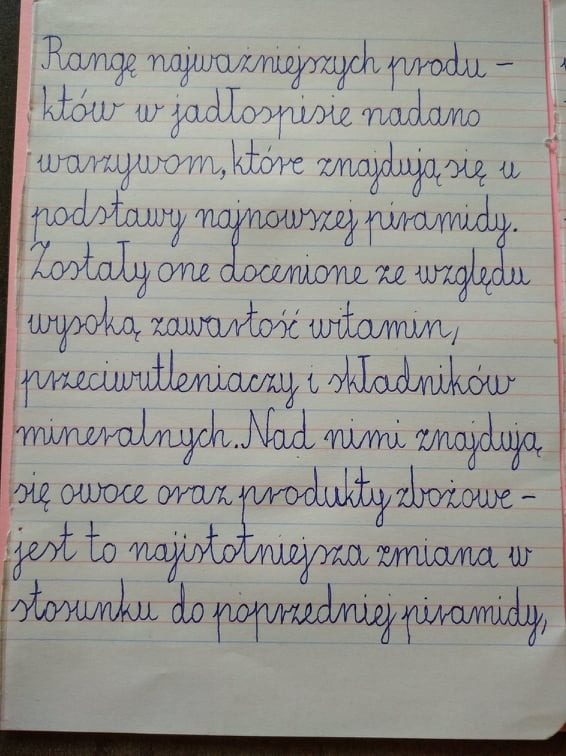 Rangę najważniejszych produ-
któw w jadłospisie nadano
warzywom, które znajdują się u
podstawy najnowszej piramidy.
Zostały one docenione ze względu
wysoką zawartość witamin,
przeciwutleniaczy i składników
mineralnych. Nad nimi znajdują
się owoce oraz produkty zbożowe -
jest to najistotniejsza zmiana w
stosunku do poprzedniej piramidy,